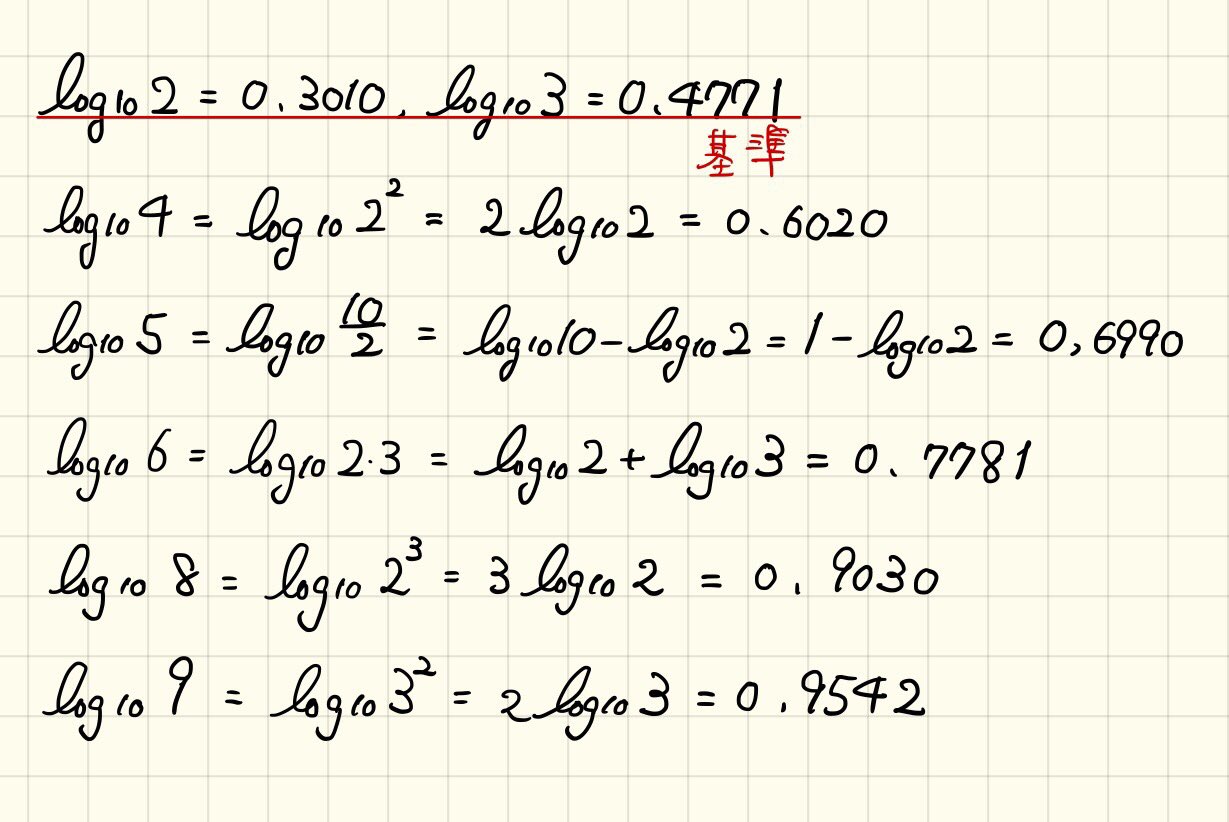 log₁₀2 = 0.3010, log₁₀3 = 0.4771
基準
log₁₀4 = log₁₀2² = 2log₁₀2 = 0.6020
log₁₀5 = log₁₀10/2 = log₁₀10-log₁₀2 = 1-log₁₀2 = 0,6990
log₁₀6 = log₁₀2·3 = log₁₀2+log₁₀3 = 0.7781
log₁₀8 = log₁₀2³ = 3log₁₀2 = 0.9030
log₁₀9 = log₁₀3² = 2log₁₀3 = 0.9542